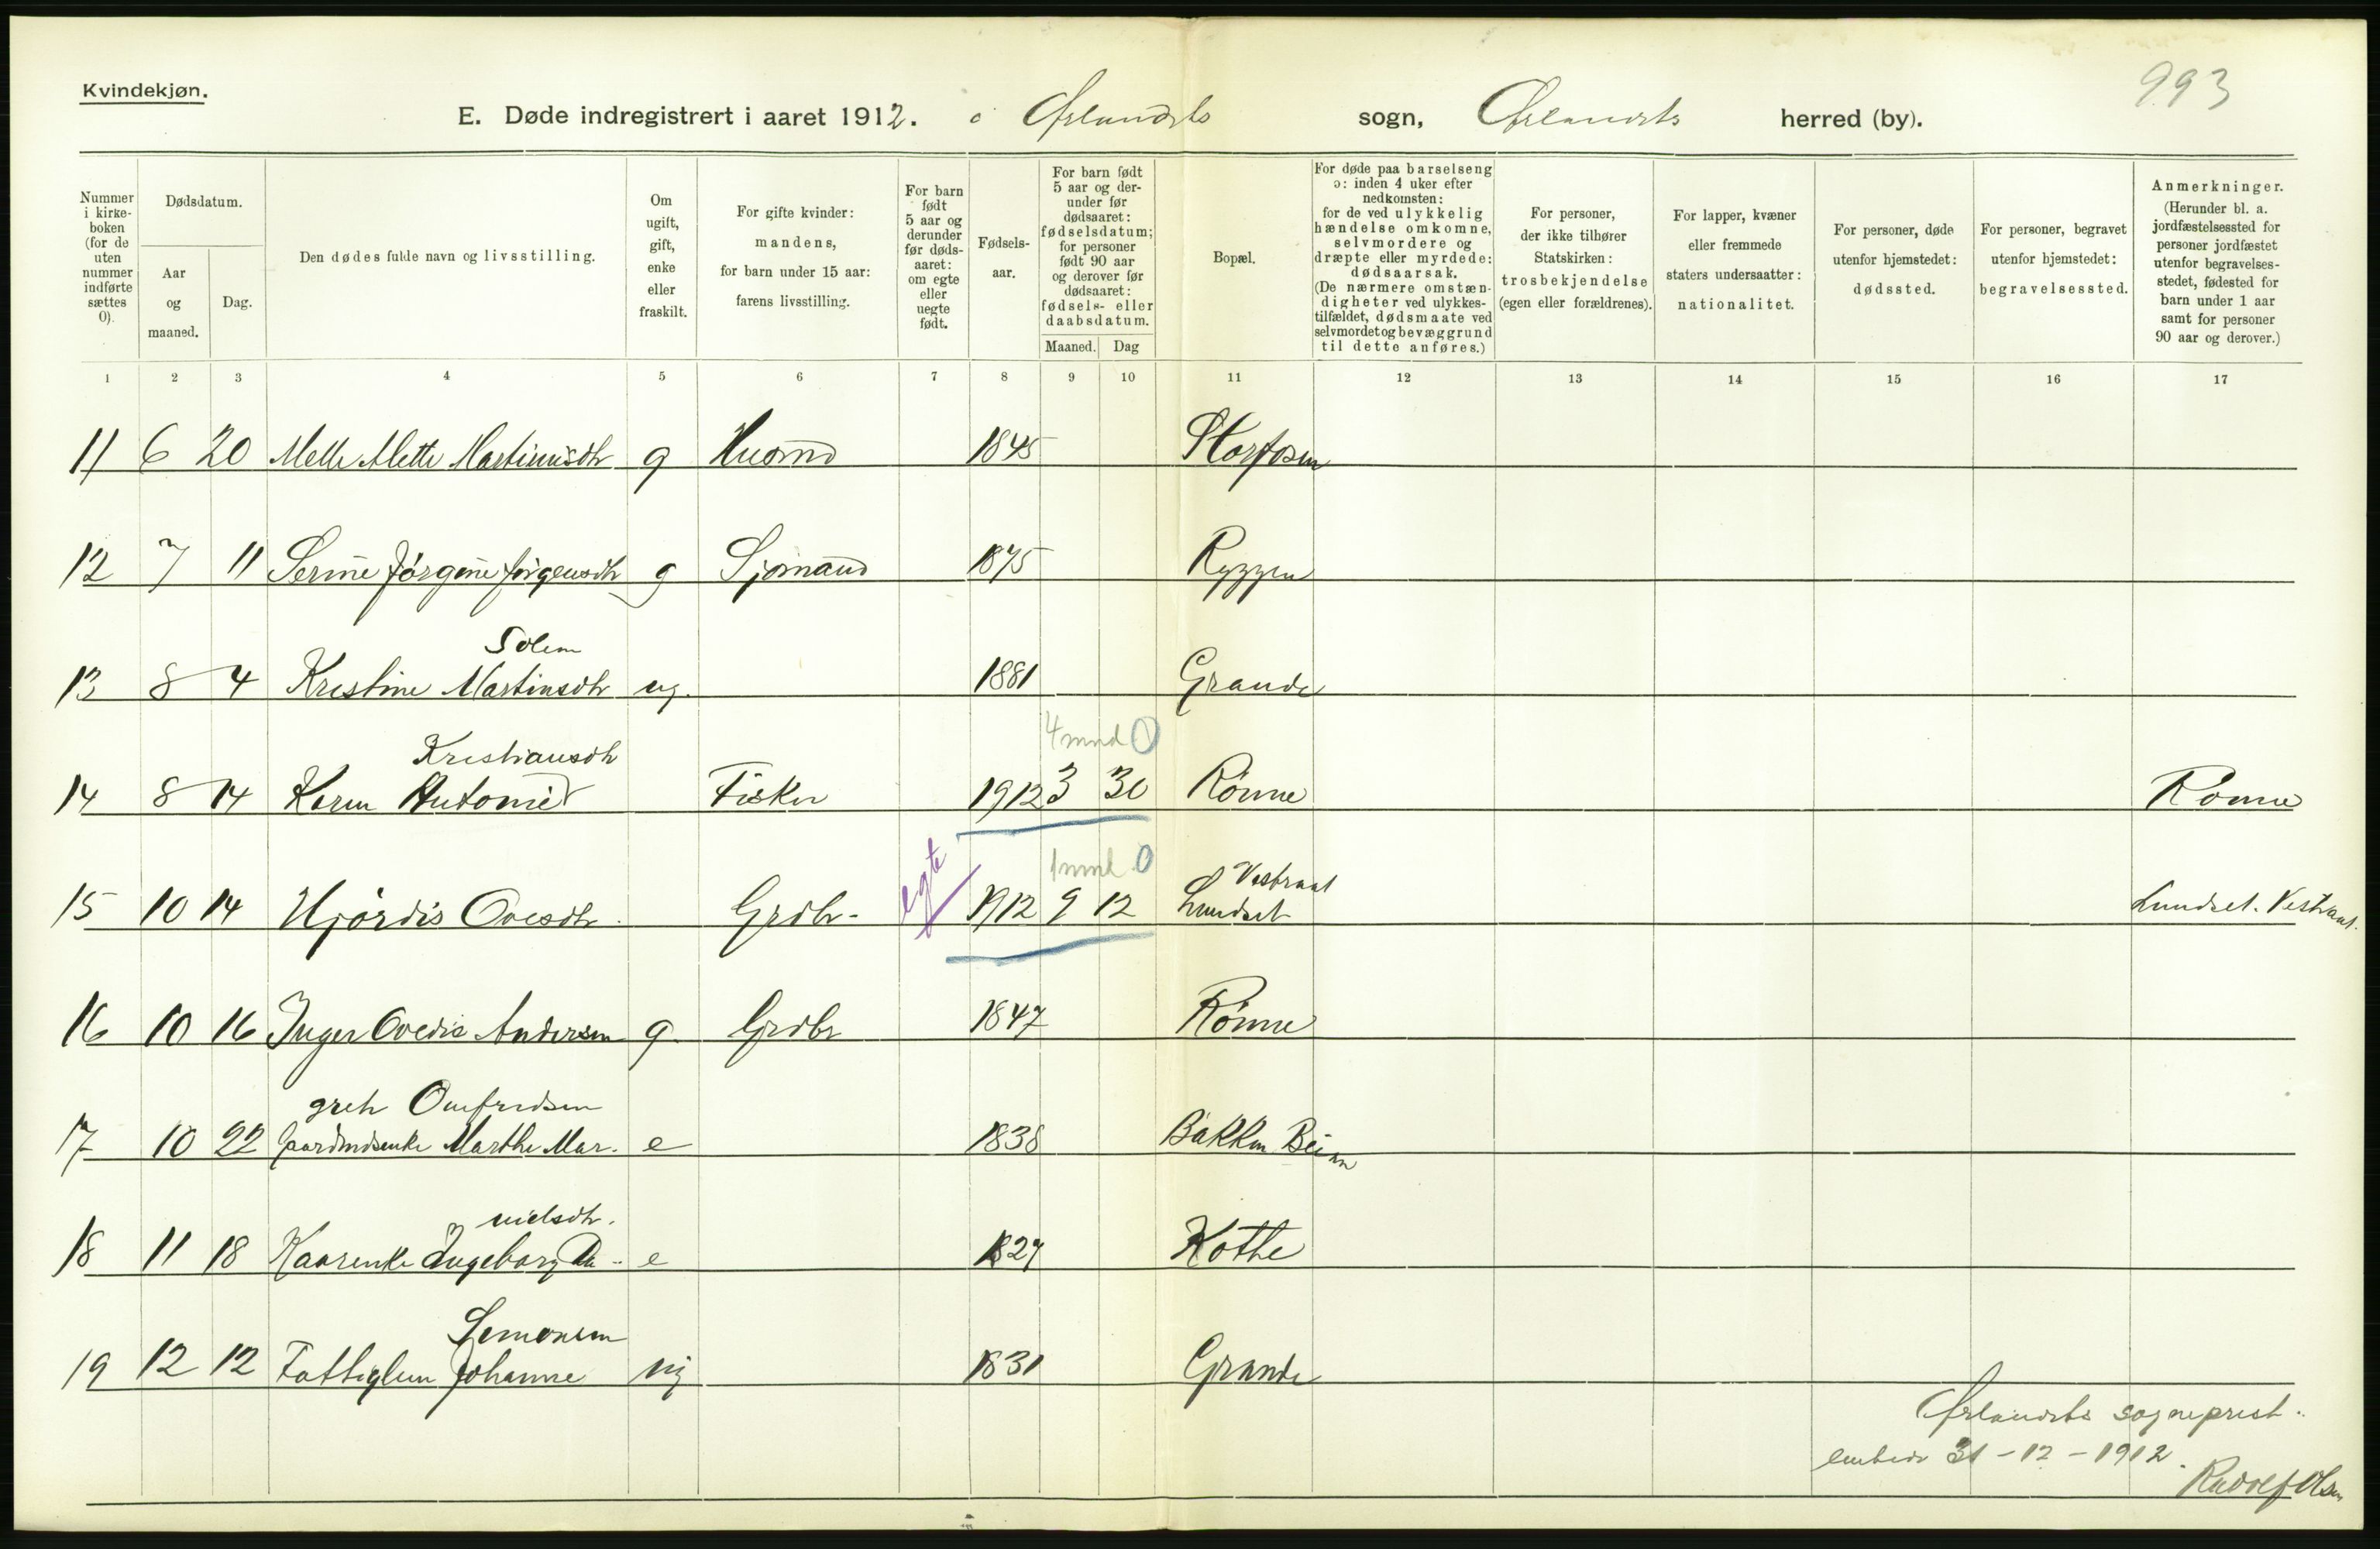 Kvindekjøn.
993
E. Døde indregistrert i aaret 1912. i Ørlandets sogn, Ørlandets herred (by).
Nummer i kirke- boken (for de uten nummer indførte sættes 0).
Dødsdatum.
Aar og maaned.
Dag.
Den dødes fulde navn og livsstilling.
Om ugift, gift, enke eller fraskilt.
For gifte kvinder: mandens, for barn under 15 aar: farens livsstilling.
For barn født 5 aar og derunder før døds- aaret: om egte eller uegte født.
Fødsels- aar.
For barn født 5 aar og der- under før dødsaaret: fødselsdatum; for personer født 90 aar og derover før dødsaaret: fødsels- eller daabsdatum.
Maaned. Dag
Bopæl.
For døde paa barselseng ɔ: inden 4 uker efter nedkomsten: for de ved ulykkelig hændelse omkomne, selvmordere og dræpte eller myrdede: dødsaarsak. (De nærmere omstæn- digheter ved ulykkes- tilfældet, dødsmaate ved selvmordet og bevæggrund til dette anføres.)
For personer, der ikke tilhører Statskirken: trosbekjendelse (egen eller forældrenes).
For lapper, kvæner eller fremmede staters undersaatter: nationalitet.
For personer, døde utenfor hjemstedet: dødssted.
For personer, begravet utenfor hjemstedet: begravelsessted.
Anmerkninger. (Herunder bl. a. jordfæstelsessted for personer jordfæstet utenfor begravelses- stedet, fødested for barn under 1 aar samt for personer 90 aar og derover.)
1 2 3 4 5 6 7 8 9 10 11 12 13 14 15 16 17
11 6 20 Mette Martinusdtr g Husmd 1845 Storfosen
12 7 11 Serine Jørgine Jørgensdtr g Sjømand 1875 Ryggen
Solem
13 8 4 Kristine Martinsdtr ug. 1881 Grande
Kristiansdtr 4 mnd 0
14 8 14 Karen Antonie Fisker 1912 3 30 Rønne Rønne
egte 1 mnd 0 Vestraat
15 10 14 Hjørdis Ovesdtr Grdbr. 1912 9 12 Lundset Lundset. Vestraat.
16 10 16 Inger Ovedie Andersen g. Grdbr 1847 Rønne
greth Onefredsen
17 10 22 Gaardmdsenke Marthe Mar. e 1838 Bakken Beian
nielsdtr.
18 11 18 Kaarenke Ingeborg Da.. e 1827 Kothe
Semonsen
19 12 12 Fattiglem Johanne ug 1831 Grande
Ørlandets sogneprest.
embede 31-12-1912.
Rudolf Olsen